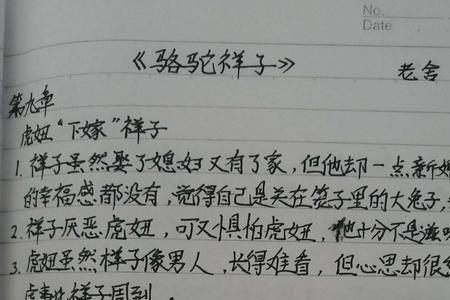 No.
Date
《骆驼祥子》 老舍
第九章
虎妞“下嫁”祥子
1. 祥子虽然娶了媳妇又有了家，但他却一点新
的幸福感都没有，觉得自己是关在笼子里的大兔子，
2. 祥子厌恶虎妞，可又惧怕虎妞，他十分不是滋
3. 虎妞虽然样子像男人，长得难看，但心思却很
虑事比祥子周到.